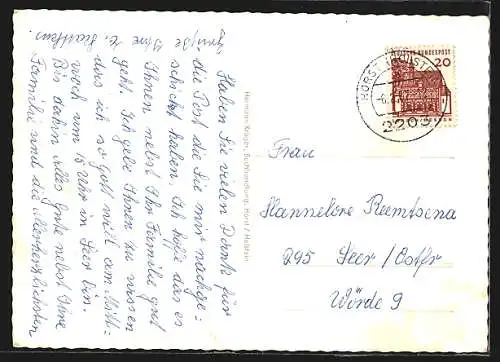 Haben Sie vielen Dank für
die Post die Sie mir nachge-
schickt haben. Ich hoffe das es
Ihnen nebst Ihr Familie gut
geht. Ich gebe Ihnen zu wissen
das ich so Gott will am Mitt-
woch um 15 Uhr in Leer bin.
Bis dahin alles Gute nebst Ihre
Familie und die Allerherzlichsten
Grüße Ihre
Hermann Krüger, Buchhandlung, Horst / Holstein
HORST (HOLST)
2203
DEUTSCHE BUNDESPOST
20
Frau
Hannelore Reemtsena
295 Leer/Ostfr
Wörde 9